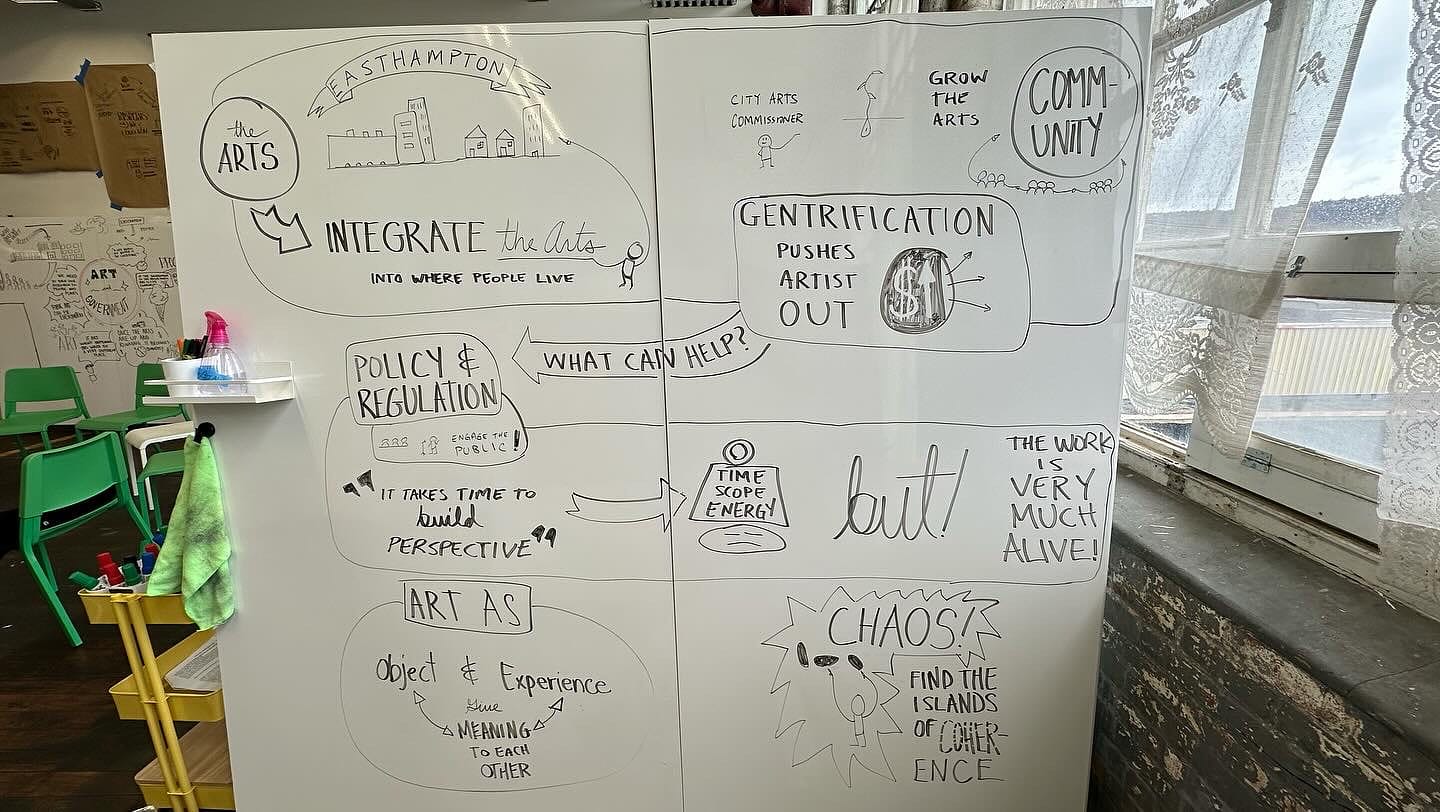 EASTHAMPTON
the
ARTS
INTEGRATE the Arts
INTO WHERE PEOPLE LIVE
CITY ARTS
COMMISSIONER
GROW
THE
ARTS
COMM-
UNITY
GENTRIFICATION
PUSHES
ARTIST
OUT
$
WHAT CAN HELP?
POLICY &
REGULATION
ENGAGE THE
PUBLIC!
"IT TAKES TIME TO
build
PERSPECTIVE"
TIME
SCOPE
ENERGY
but!
THE WORK
IS
VERY
MUCH
ALIVE!
ART AS
Object & Experience
Give
MEANING
TO EACH
OTHER
CHAOS!
FIND THE
ISLANDS
OF COHER-
ENCE
ART
GOVERNMENT